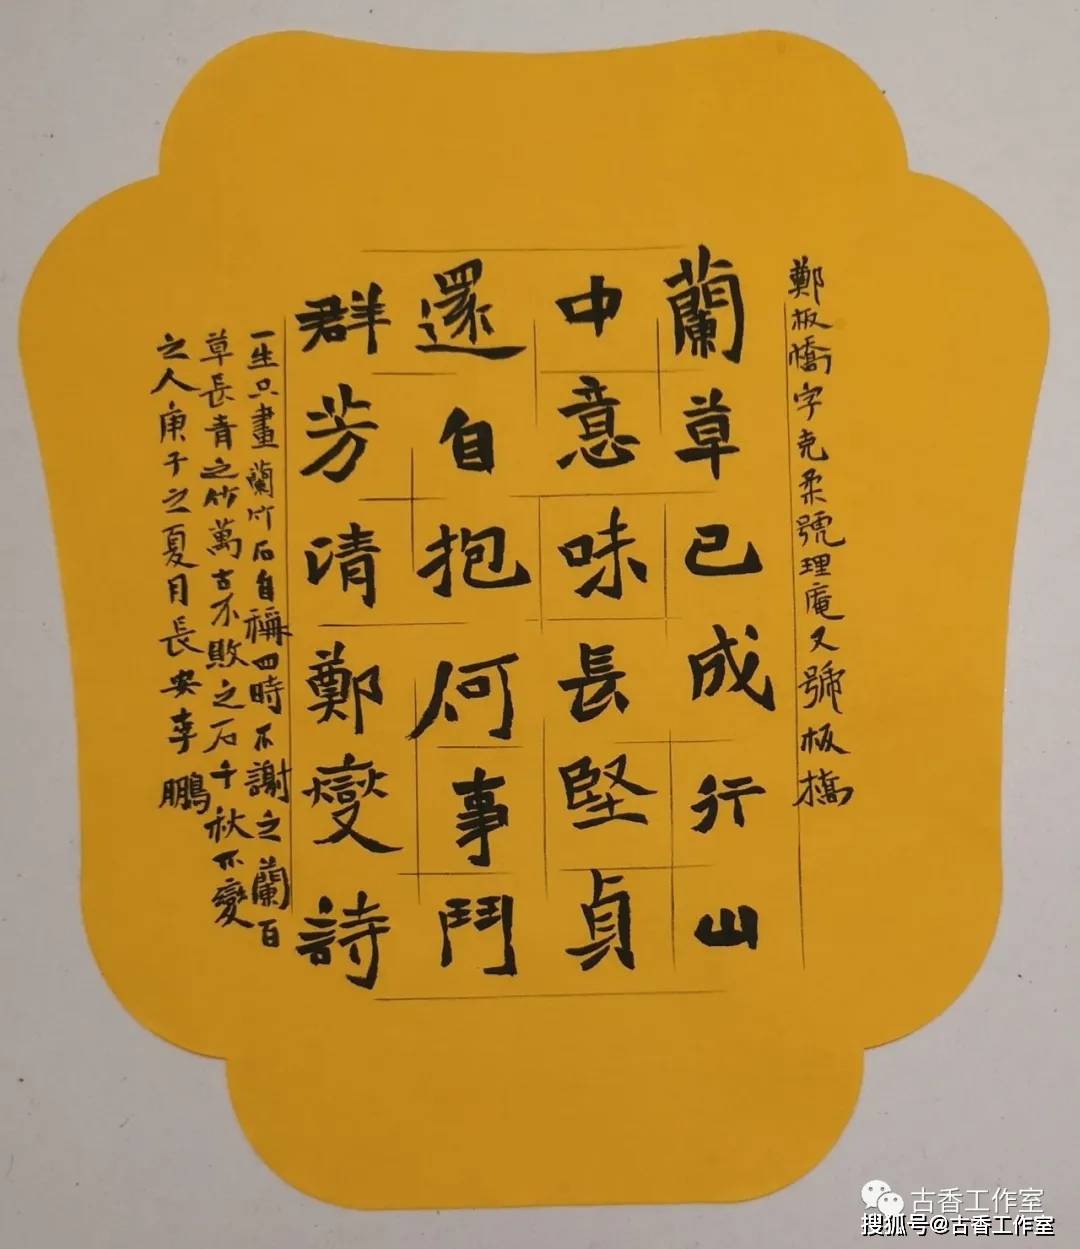 鄭板橋字克柔號理庵又號板橋
蘭草已成行山
中意味長堅貞
還自抱何事鬥
群芳清鄭燮詩
一生只畫蘭竹石自稱四時不謝之蘭百
草長青之竹萬古不敗之石千秋不變
之人庚子之夏月長安李鵬
古香工作室
搜狐号@古香工作室